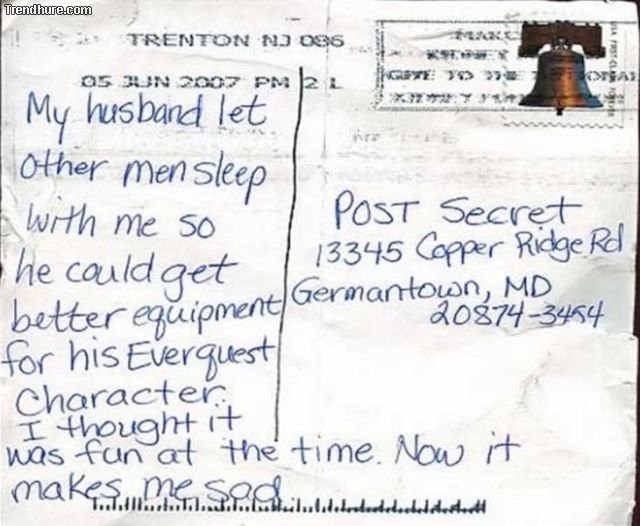 Trendhure.com
TRENTON NJ 086
05 JUN 2007 PM 2 L
My husband let
other men sleep
with me so
he could get
better equipment
for his Everquest
Character.
I thought it
was fun at the time. Now it
makes me sad.
POST Secret
13345 Copper Ridge Rd
Germantown, MD
20874-3454
GIVE TO THE